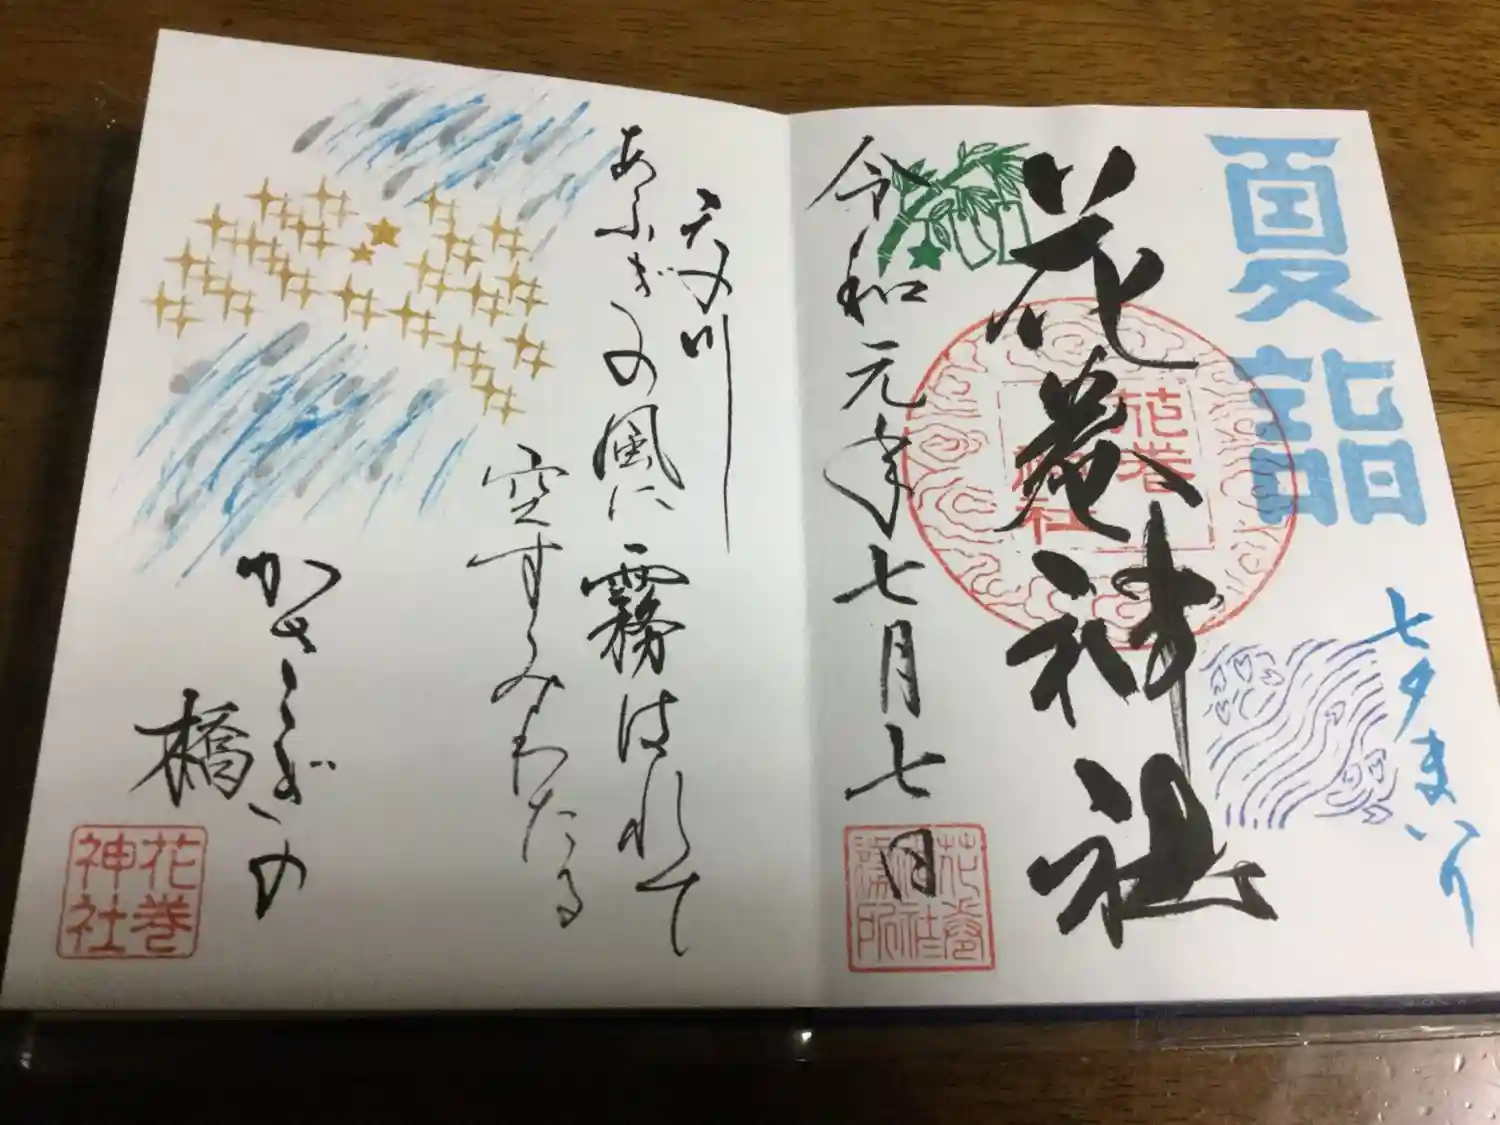 夏詣
七夕まいり
花巻神社
花巻神社
令和元年七月七日
花巻神社務所
天の川
あふぎの風に霧はれて
空すみわたる
かさゝぎの
橋
花巻神社